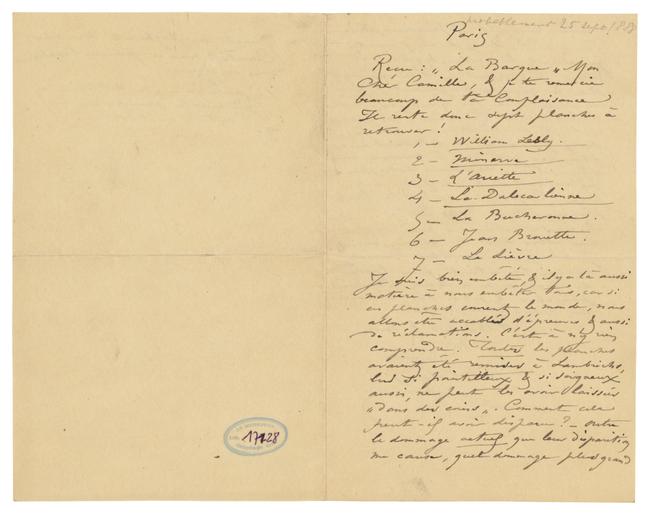 probablement 25 sept. 188
Paris
Reçu : „ La Barque „ Mon
Ché Camille, & je te remercie
beaucoup de ta Complaisance
Il reste donc sept planches à
retrouver !
1 – William Lesly.
2 – Minerve
3 – L'Ariette
4 – La Dalécarlienne
5 – La Bucheronne.
6 – Jean Brouette.
7 – Le Lièvre
Je suis bien embêté, & il y a là aussi
matière à nous embêter tous, car si
ces planches courent le monde, nous
allons être accablés d'épreuves & aussi
de réclamations. C'est à n'y rien
comprendre. Toutes les planches
avaient été remises à
lui si pointilleux & si soigneux
aussi, ne peut les avoir laissées
„ dans des coins „. Comment cela
peut-il avoir disparu ? – outre
le dommage actuel que leur disparition
me cause, quel dommage plus grand
17128